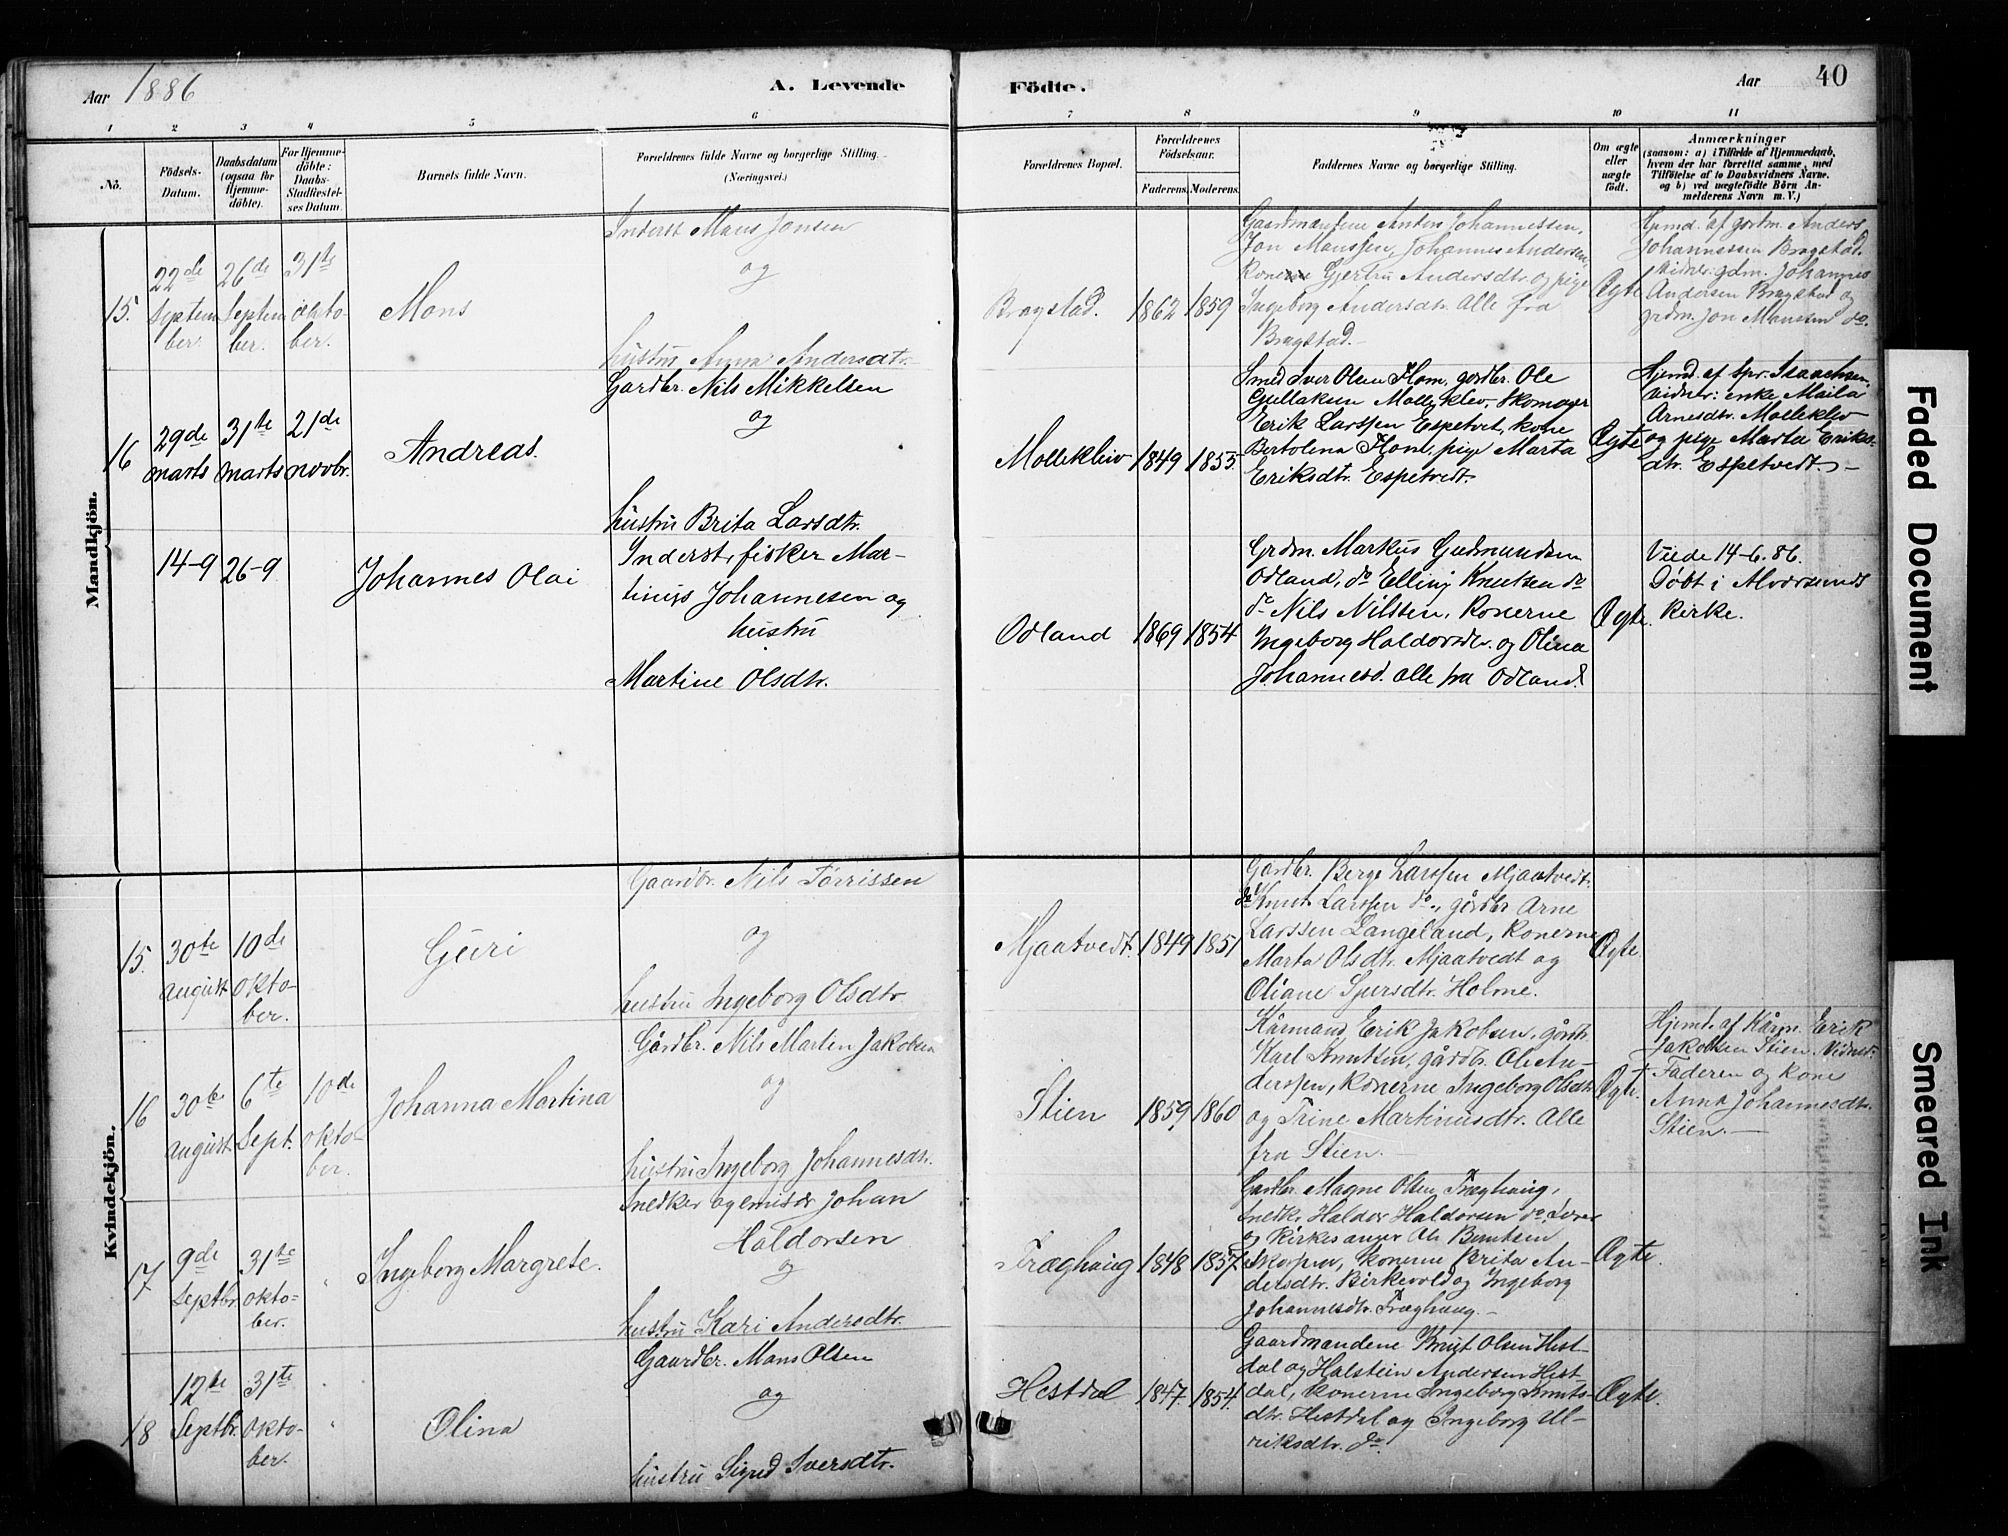 Aar 1886
A. Levende
Födte.
Aar
40
1 2 3 4 5 6 7 8 9 10 11
No.
Födsels-
Datum.
Daabsdatum
(ogsaa for
Hjemme-
döbte).
For Hjemme-
döbte:
Daabs-
Stadfæstel-
ses Datum.
Barnets fulde Navn.
Forældrenes fulde Navne og borgerlige Stilling.
(Næringsvei.)
Forældrenes Bopæl.
Forældrenes
Födselsaar.
Faderens.
Moderens.
Faddernes Navne og borgerlige Stilling.
Om ægte
eller
uægte
födt.
Anmærkninger
(saasom: a) i Tilfælde af Hjemmedaab,
hvem der har forrettet samme, med
Tilföielse af to Daabsvidners Navne,
og b) ved uægtefödte Börn An-
melderens Navn m. V.)
Mandkjön.
15.
22de
Septem
ber.
26de
Septem
ber.
31te
Okto-
ber.
Mons
Inderst Mans Jonsen
og
hustru Anna Andersdtr.
Bragstad.
1862
1859
Gaardmændene Anders Johannessen,
Jon Manssen, Johannes Andersen,
Konerne Gjertru Andersdtr. og pige
Ingeborg Andersdtr. Alle fra
Bragstad.
Ægte
Hjmd. af gordm. Anders
Johannessen Bragstad.
Vidner: gdm. Johannes
Andersen Bragstad og
grdm. Jon Manssen do.
16
29de
marts
31te
marts
21de
novbr.
Andreas.
Gardbr. Nils Mikkelsen
og
hustru Brita Larsdtr.
Molleklev
1849
1855
Smed Iver Olsen Hom, gordbr. Ole
Gullaksen Molleklev, Skomager
Erik Larssen Espetvet, kone
Bertolina Hom, pige Marta
Eriksdtr. Espetvedt.
Ægte
Hjemd. af Spr. Isaachsen,
Vidner: enke Maila
Arnesdtr. Molleklev
og pige Marta Eriks-
dtr. Espetvedt. —
14-9
26-9
Johannes Olai
Inderst, fisker Mar-
tinus Johannesen og
hustru
Martine Olsdtr.
Odland
1869
1854
Grdm. Markus Gudmundsen
Odland, do Elling Knutsen do
do Nils Nilssen, Konerne
Ingeborg Haldorsdtr. og Olina
Johannesd. alle fra Odland.
Ægte.
Viede 14-6.86.
Døbt i Alversund
Kirke.
Kvindekjön.
15.
30te
august
10de
okto-
ber.
Guri
Gaardbr. Nils Torrissen
og
hustru Ingeborg Olsdtr.
Mjaatvedt.
1849
1851
Gårdbr. Berge Larssen Mjaatvedt.
do Knut Larssen do., gårdbr Arne
Larssen Langeland, konerne
Marta Olsdtr. Mjaatvedt og
Oliane Sjursdtr. Holme.
Ægte.
16
30te
august
6te
Sept.
10de
okto-
ber.
Johanna Martina
Gårdbr. Nils Martin Jakobsen
og
hustru Ingeborg Johannesdtr.
Stien
1859
1860
Kårmand Erik Jakobsen, gårdb.
Karl Knutsen, gårdbr. Ole An-
derssen, konerne Ingeborg Olsdtr.
og Trine Martinusdtr. Alle
fra Stien. —
Ægte.
Hjemd. af Kårm. Erik
Jakobsen Stien. Vidner:
Faderen og kone
Anna Johannesdtr.
Stien. —
17
9de
Septbr.
31te
okto-
ber.
Ingeborg Margrete.
Snedker og emisær Johan
Haldorsen
og
hustru Kari Andersdtr.
Træghaug
1848
1857
Gardbr. Magne Olsen Træghaug,
snedkr. Haldor Haldorsen do, Lærer
og Kirkesanger Ole Berntsen
konerne Brita An-
dersdtr. Birkevold og Ingeborg
Johannesdtr. Træghaug. —
Ægte.
18
12te
Septbr.
31te
okto-
ber.
Olina
Gaardbr. Mons Olsen
og
hustru Sigrid Iversdtr.
Hestdal
1847.
1854.
Gaardmandene Knut Olsen Hest-
dal og Halstein Andersen Hest-
dal, konerne Ingeborg Knuts-
dtr. Hestdal og Ingeborg Ul-
riksdtr. do.
Ægte.
Faded Document
Smeared Ink